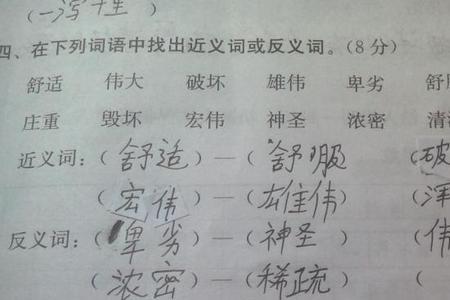 (一泻千里)
四、在下列词语中找出近义词或反义词。(8分)
舒适 伟大 破坏 雄伟 卑劣 舒
庄重 毁坏 宏伟 神圣 浓密 清
近义词:(舒适)—(舒服 (破
(宏伟)—(雄伟) (浑
反义词:(卑劣)—(神圣) (伟
(浓密)—(稀疏) (